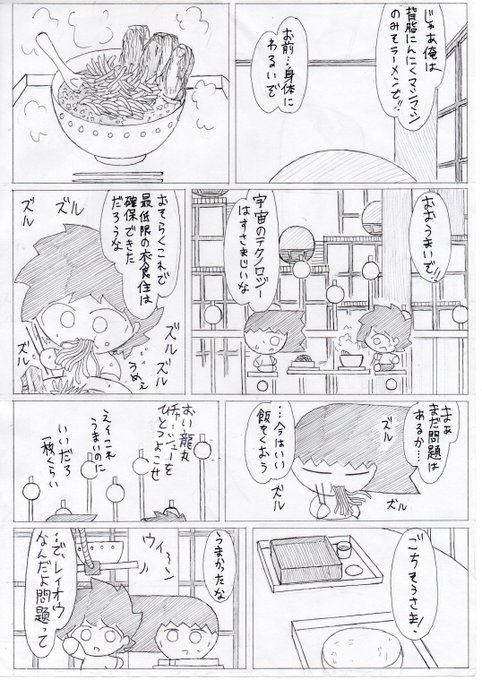 じゃあ俺は
背脂にんにくマシマシ
のみそラーメンで!!
お前…身体に
わるいで
おおうまいで!!
宇宙のテクノロジー
はすさまじいな
おそらくこれで
最低限の衣食住は
確保できた
だろうな
ズル
ズル
ズル
ズル
ズル
うめぇ
まぁ
まだ問題は
あるか…
…今はいい
飯をくおう
ズル
ズル
ズル
おい龍丸
チャーシューを
ひとつよこせ
えーこれ
うまいのに
いいだろ
一枚くらい
ごちそうさま!
うまかったな
ウィーン
…でレイオウ
なんだよ問題って